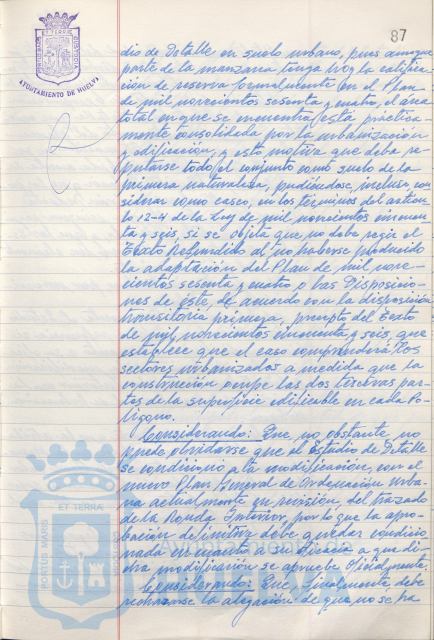 87
AYUNTAMIENTO DE HUELVA
dio de Detalle en suelo urbano, pues aunque
parte de la manzana tenga hoy la califica-
ción de reserva formalmente en el Plan
de mil novecientos sesenta y cuatro, el área
total en que se encuentra está práctica-
mente consolidada por la urbanización
y edificación, y esto motiva que deba re-
putarse todo el conjunto como suelo de la
primera naturaleza, pudiéndose, incluso, con
siderar como casco, en los términos del artícu
lo 12-4 de la Ley de mil novecientos cincuen-
ta y seis, si se objeta que no debe regir el
Texto Refundido al no haberse producido
la adaptación del Plan de mil nove-
cientos sesenta y cuatro a las Disposicio-
nes de éste, de acuerdo con la disposición
transitoria primera, precepto del Texto
de mil novecientos cincuenta y seis, que
establece que el casco comprenderá los
sectores urbanizados a medida que la
construcción ocupe las dos terceras par-
tes de la superficie edificable en cada Po-
lígono.
Considerando: Que, no obstante, no
puede olvidarse que el Estudio de Detalle
se condicionó a la modificación, con el
nuevo Plan General de Ordenación Urba-
na actualmente en revisión del trazado
de la Ronda Interior, por lo que la apro-
bación definitiva debe quedar condicio-
nada en cuanto a su eficacia a que di-
cha modificación se apruebe oficialmente.
Considerando: Que, finalmente debe
rechazarse la alegación de que no se ha
PORTUS MARIS
ET TERRAE